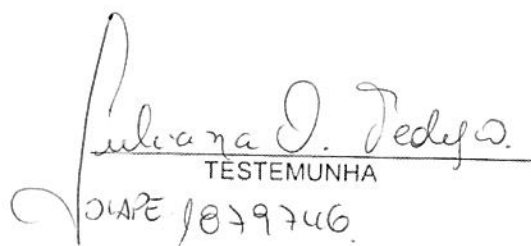 Juliana O.
TESTEMUNHA
SIAPE 1879746